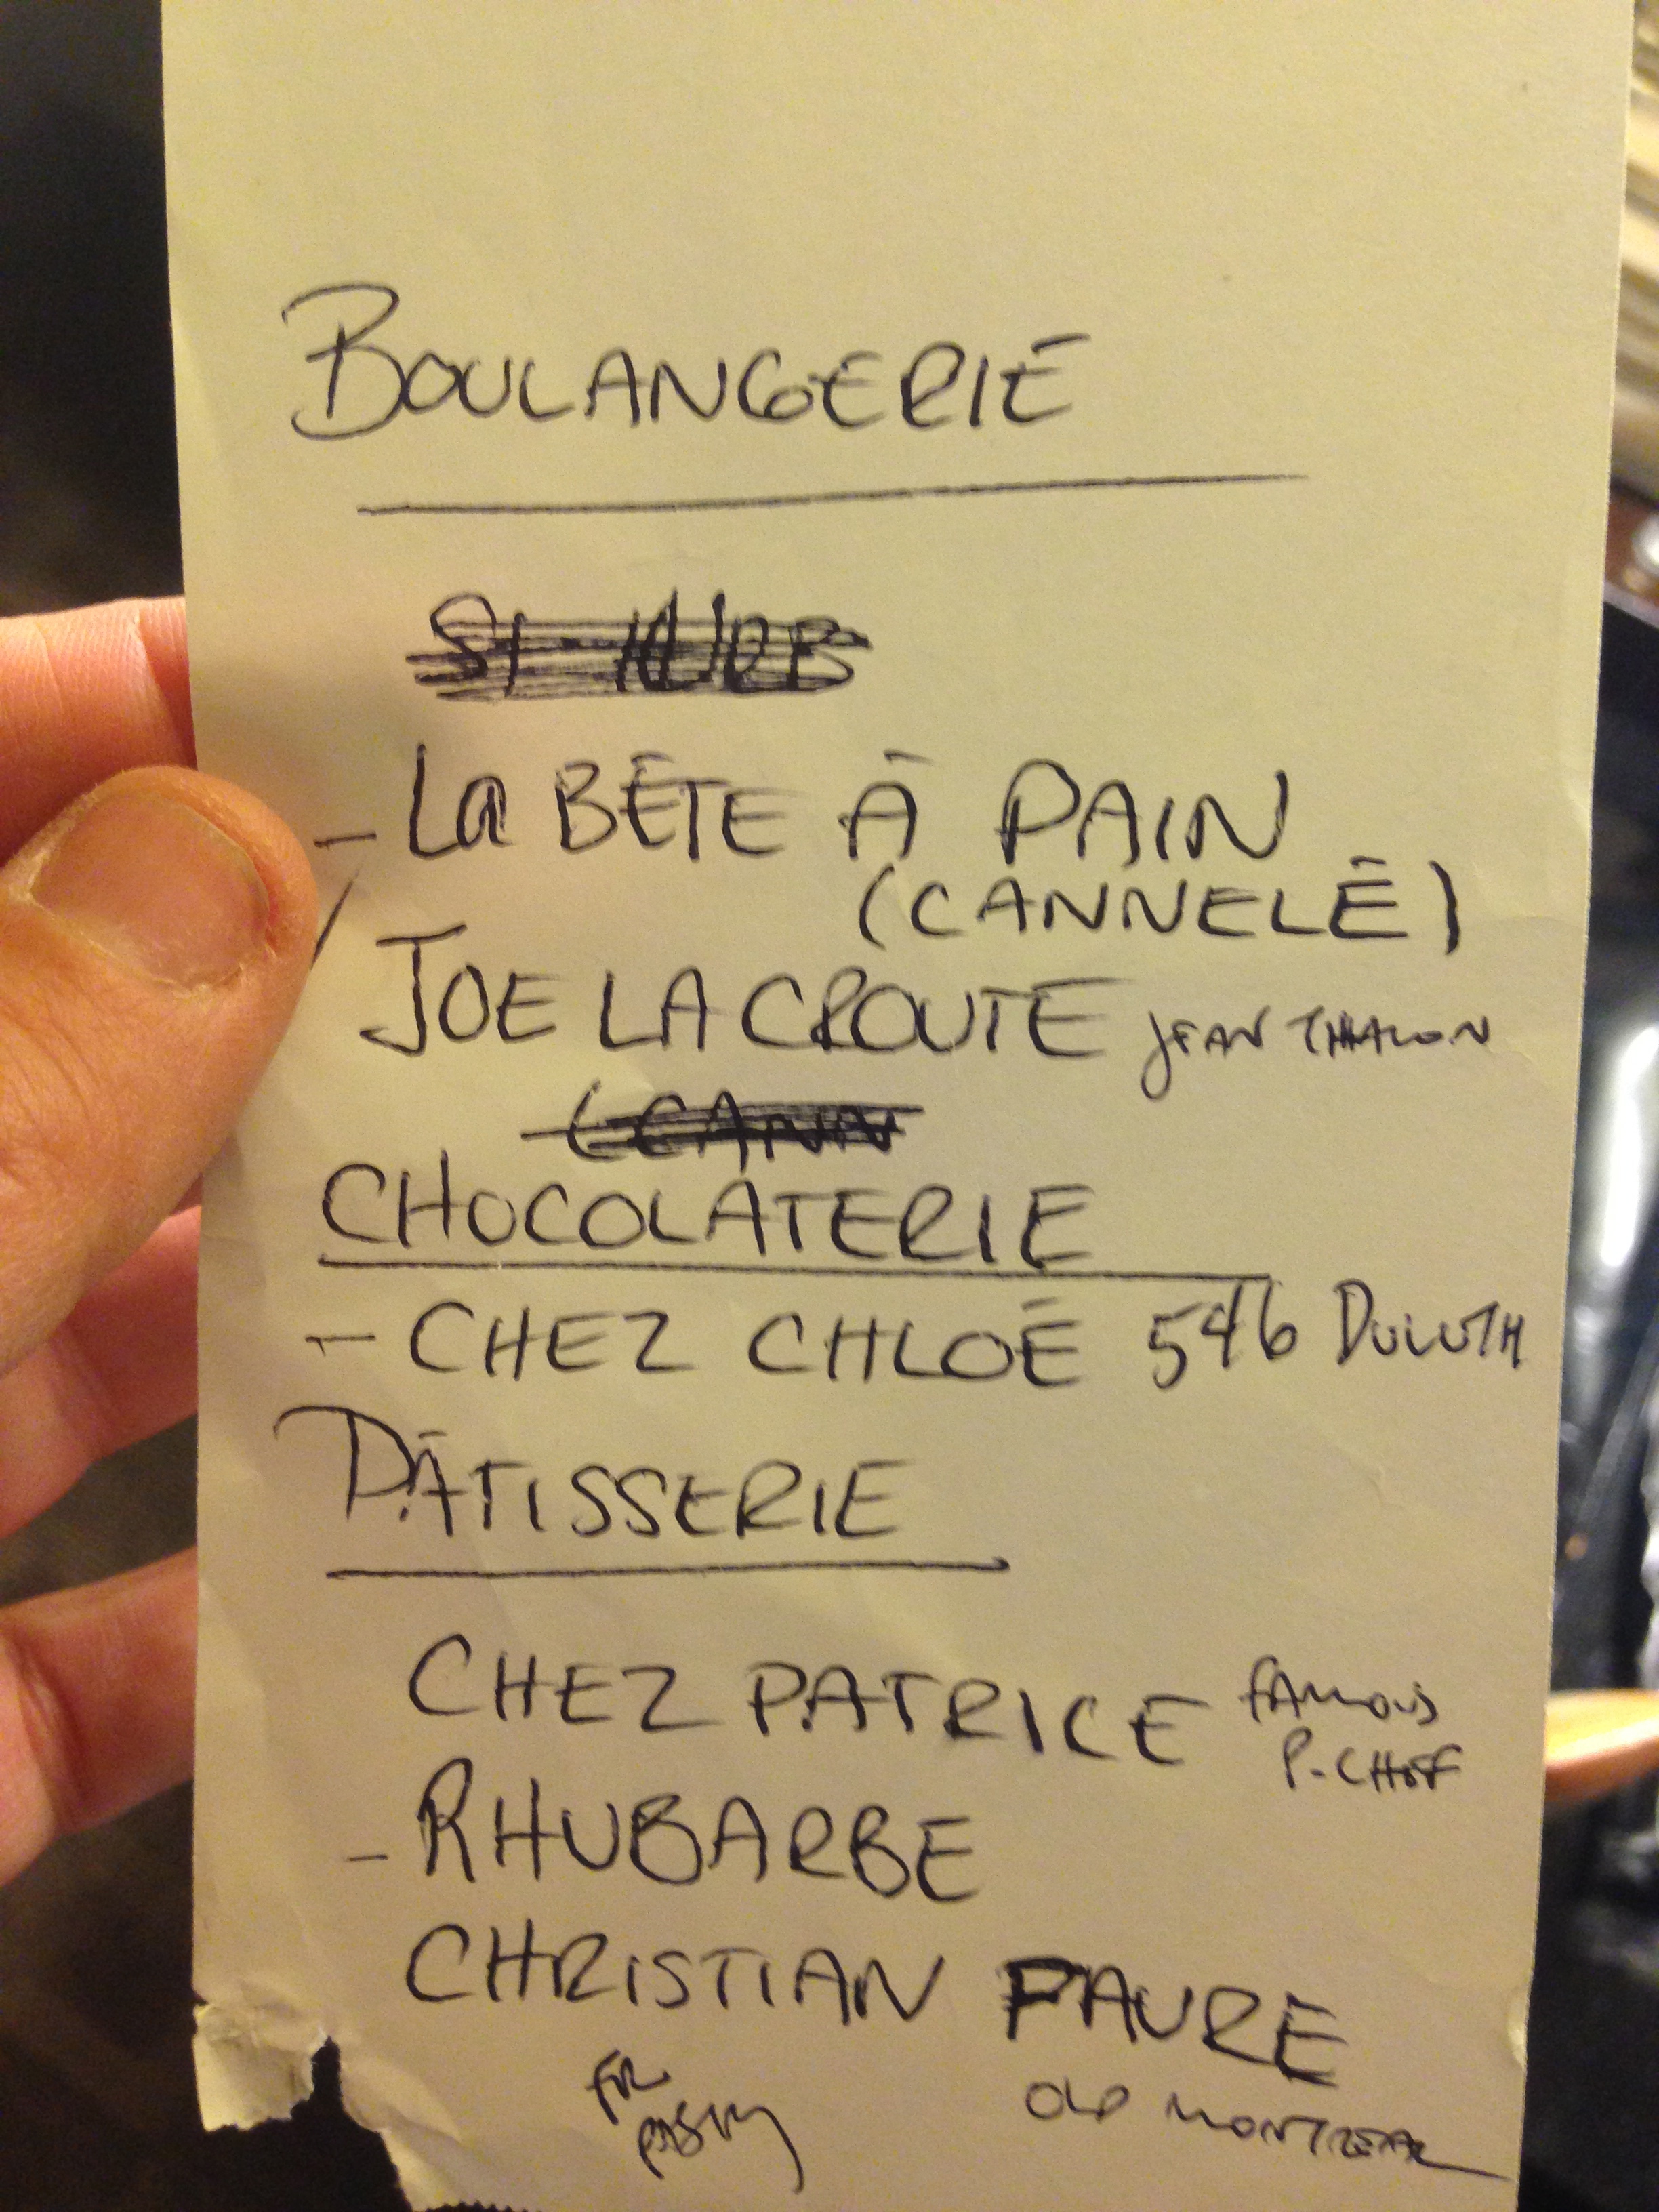 BOULANGERIE
- La BÊTE À PAIN
(CANNELÉ)
JOE LA CROUTE JEAN TALON
(CANN
CHOCOLATERIE
- CHEZ CHLOÉ 546 DULUTH
PÂTISSERIE
CHEZ PATRICE FAMOUS
P. CHEF
- RHUBARBE
CHRISTIAN FAURE
FR OLD MONTREAL
PASTRY